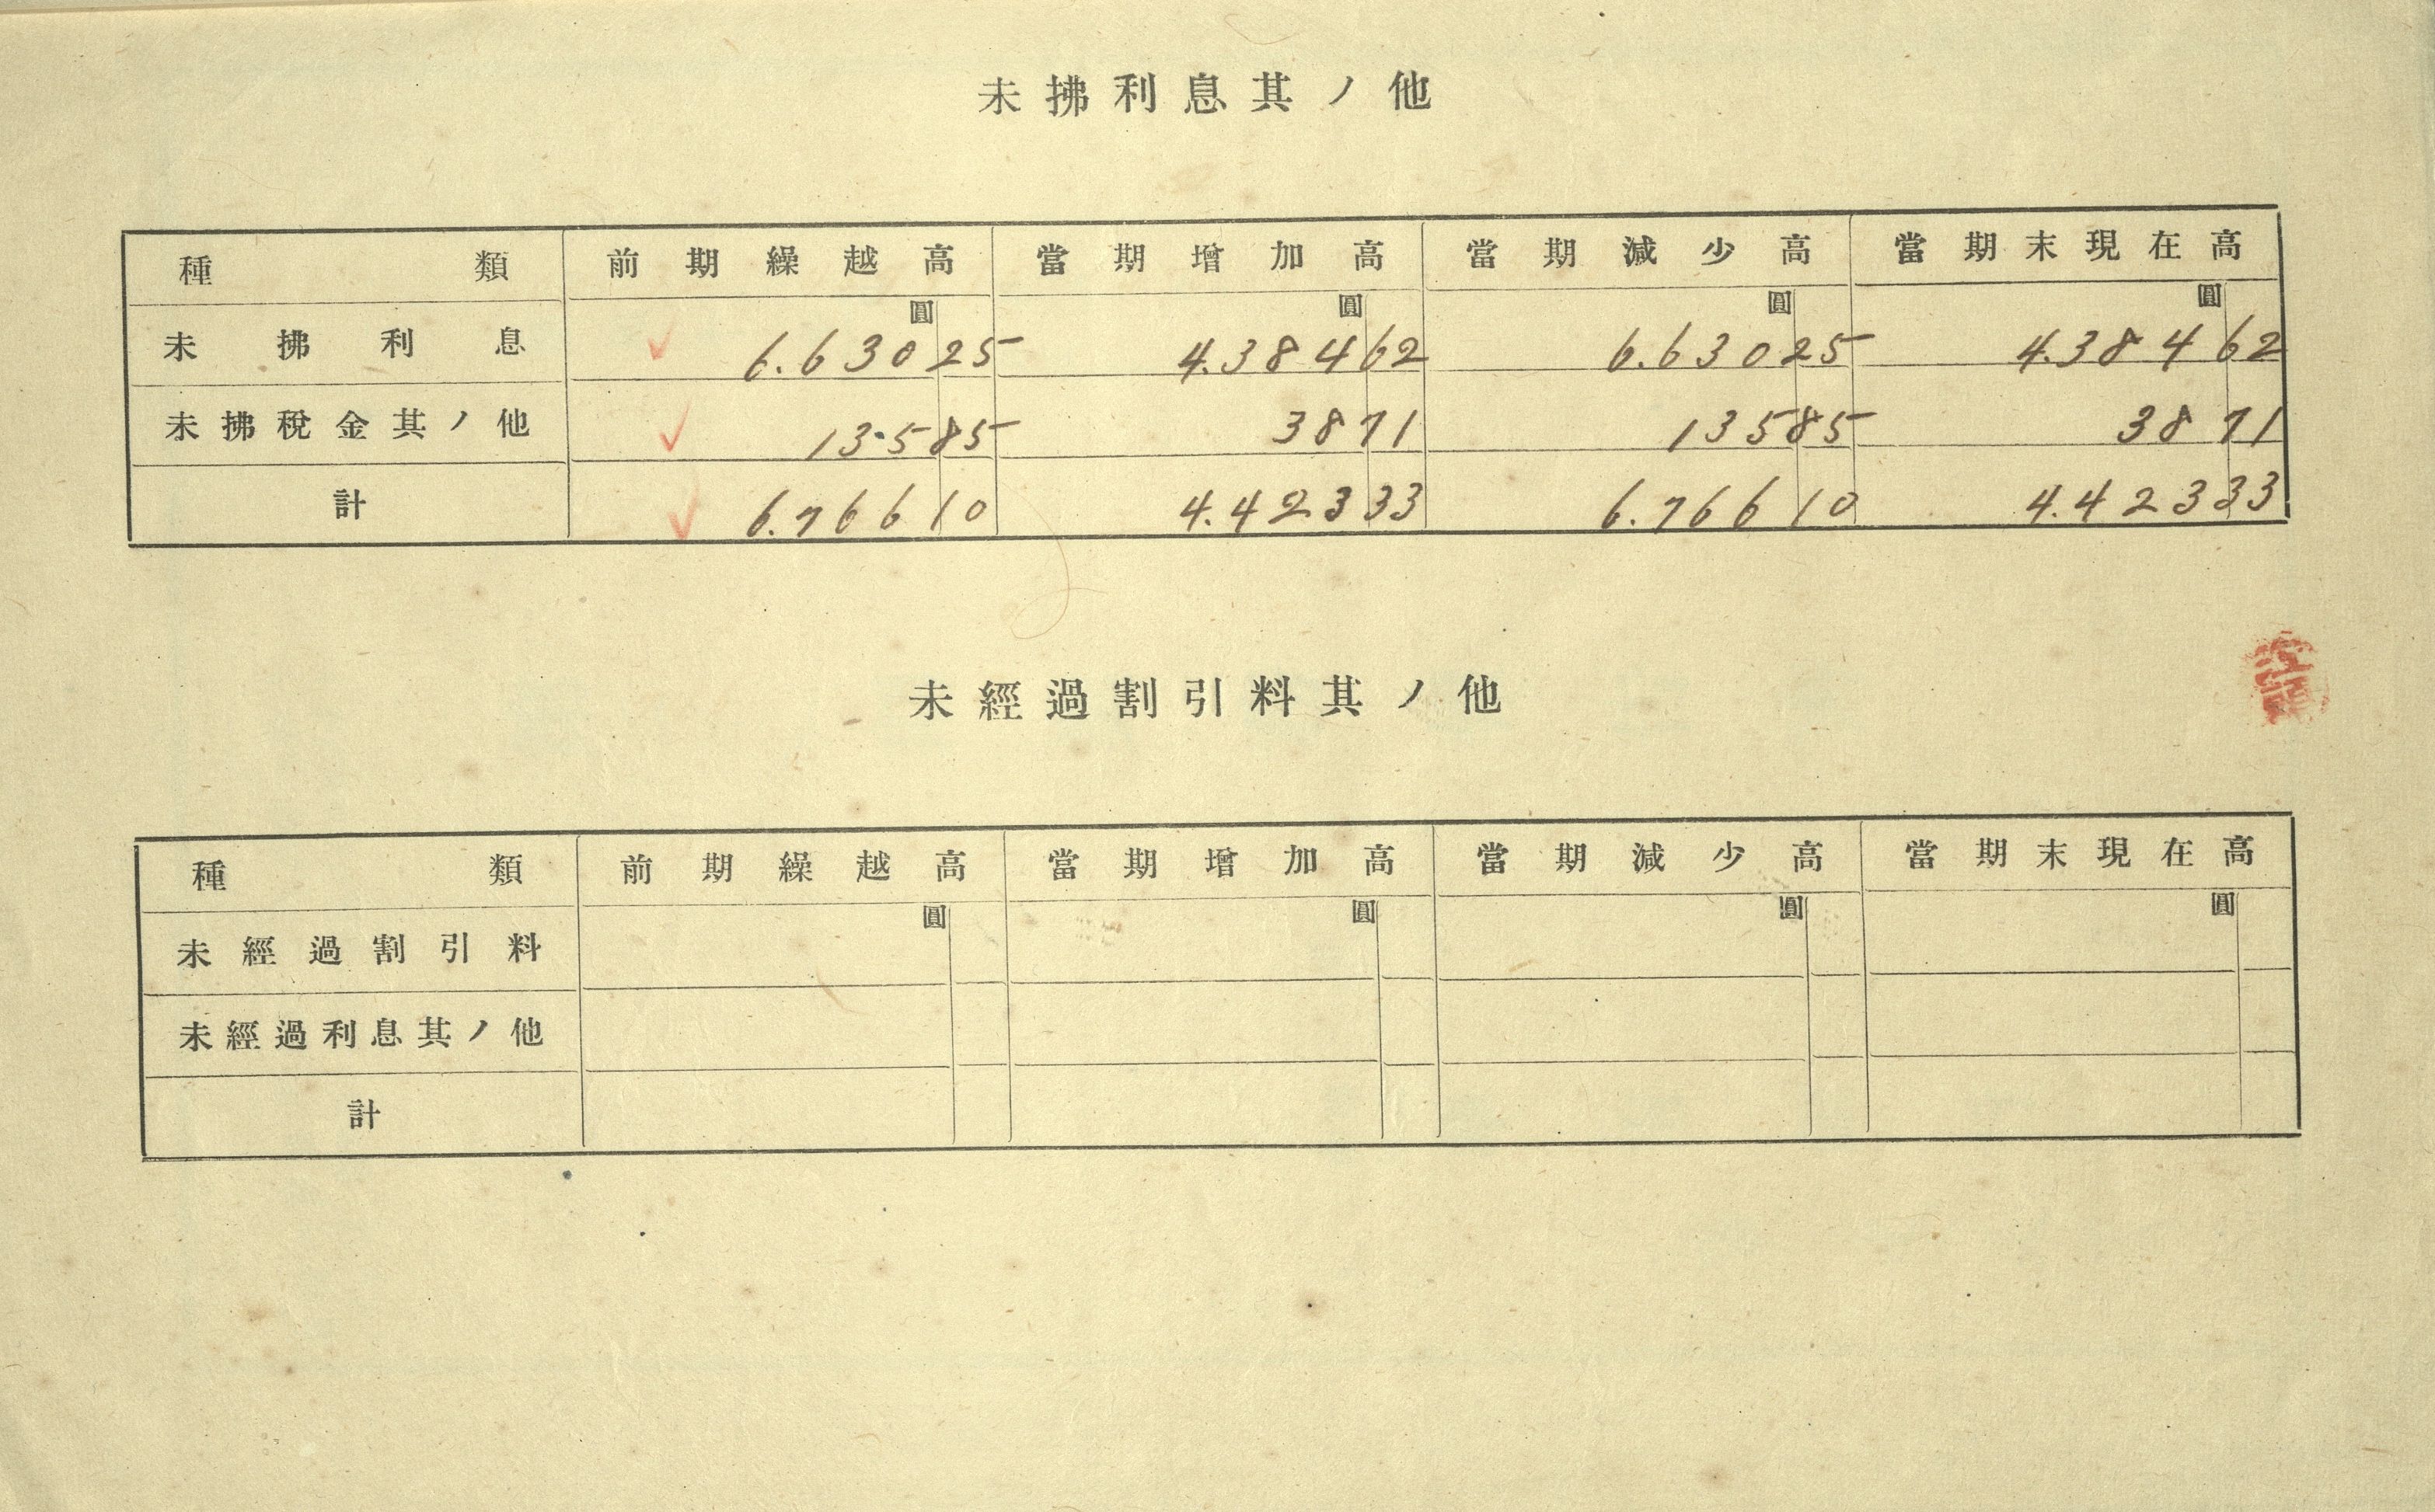 未拂利息其ノ他
種類 前期繰越高 當期增加高 當期減少高 當期末現在高
圓 圓 圓 圓
未拂利息 6.630 25 4.384 62 6.630 25 4.384 62
未拂稅金其ノ他 13·5 85 38 71 135 85 38 71
計 6.766 10 4.423 33 6.766 10 4.423 33
未經過割引料其ノ他
種類 前期繰越高 當期增加高 當期減少高 當期末現在高
圓 圓 圓 圓
未經過割引料
未經過利息其ノ他
計